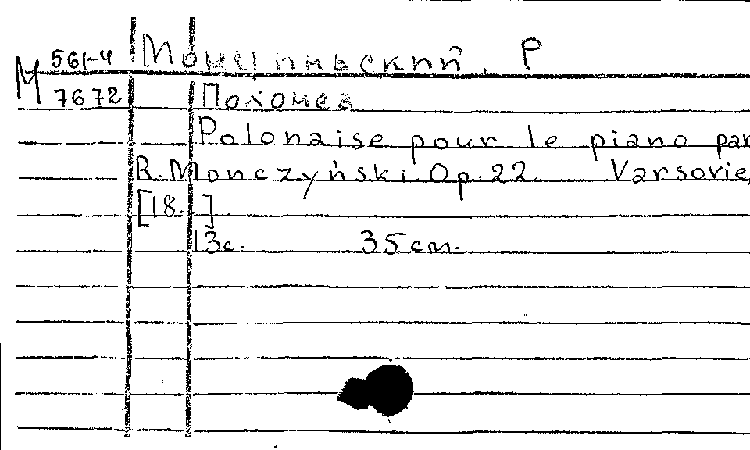 М 561-4 Мончиньский, Р
7672 Полонез
Polonaise pour le piano par
R. Monczyński. Op. 22. Varsovie,
[18. ]
13с. 35 см.